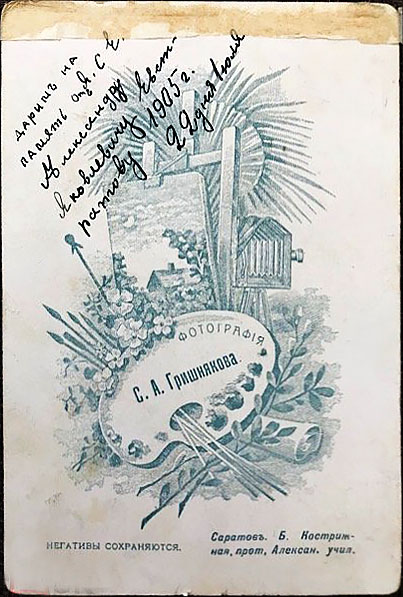 даримъ на
память отъ С. Е.
Александру Евст-
Яковлевичу 1905 г.
ратову 22 дня Юля
ФОТОГРАФІЯ
С. А. Гришнякова.
НЕГАТИВЫ СОХРАНЯЮТСЯ.
Саратовъ. Б. Костриж-
ная, прот. Алексан. учил.